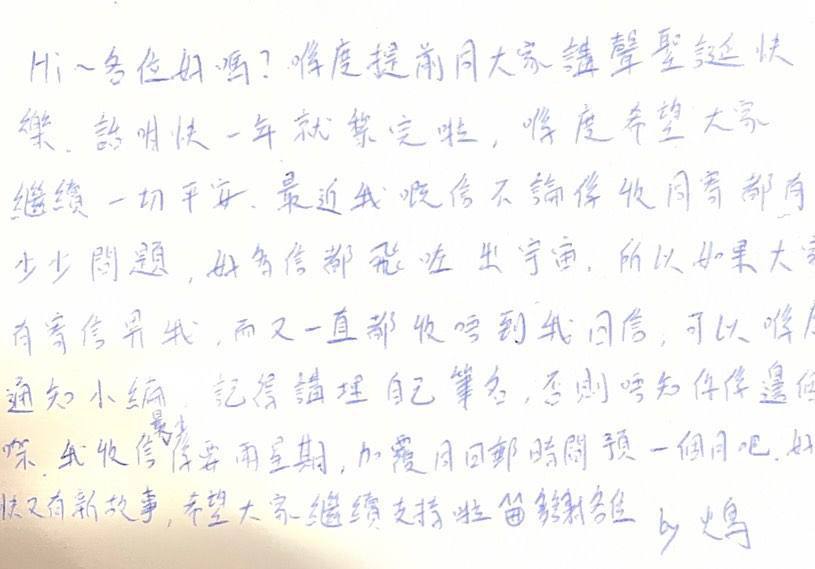 Hi～各位好嗎？喺度提前同大家講聲聖誕快
樂．話咁快一年就黎完啦，喺度希望大家
繼續一切平安．最近我嘅信不論係收同寄都有
少少問題，好多信都飛咗出宇宙．所以如果大家
有寄信畀我，而又一直都收唔到我回信，可以喺度
通知小編．記得講埋自己筆名，否則唔知你係邊個
㗎．我收信最少係要兩星期，加覆同回郵時間預一個月吧．好
快又有新故事，希望大家繼續支持啦 多謝各位 by 火鳥